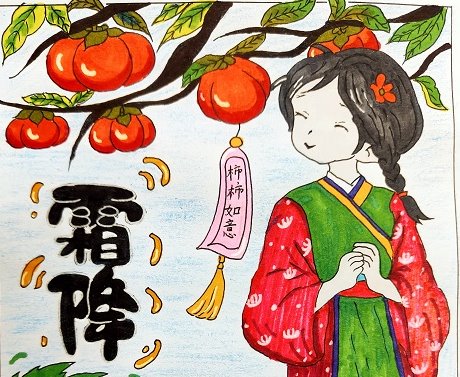 霜降
柿柿如意